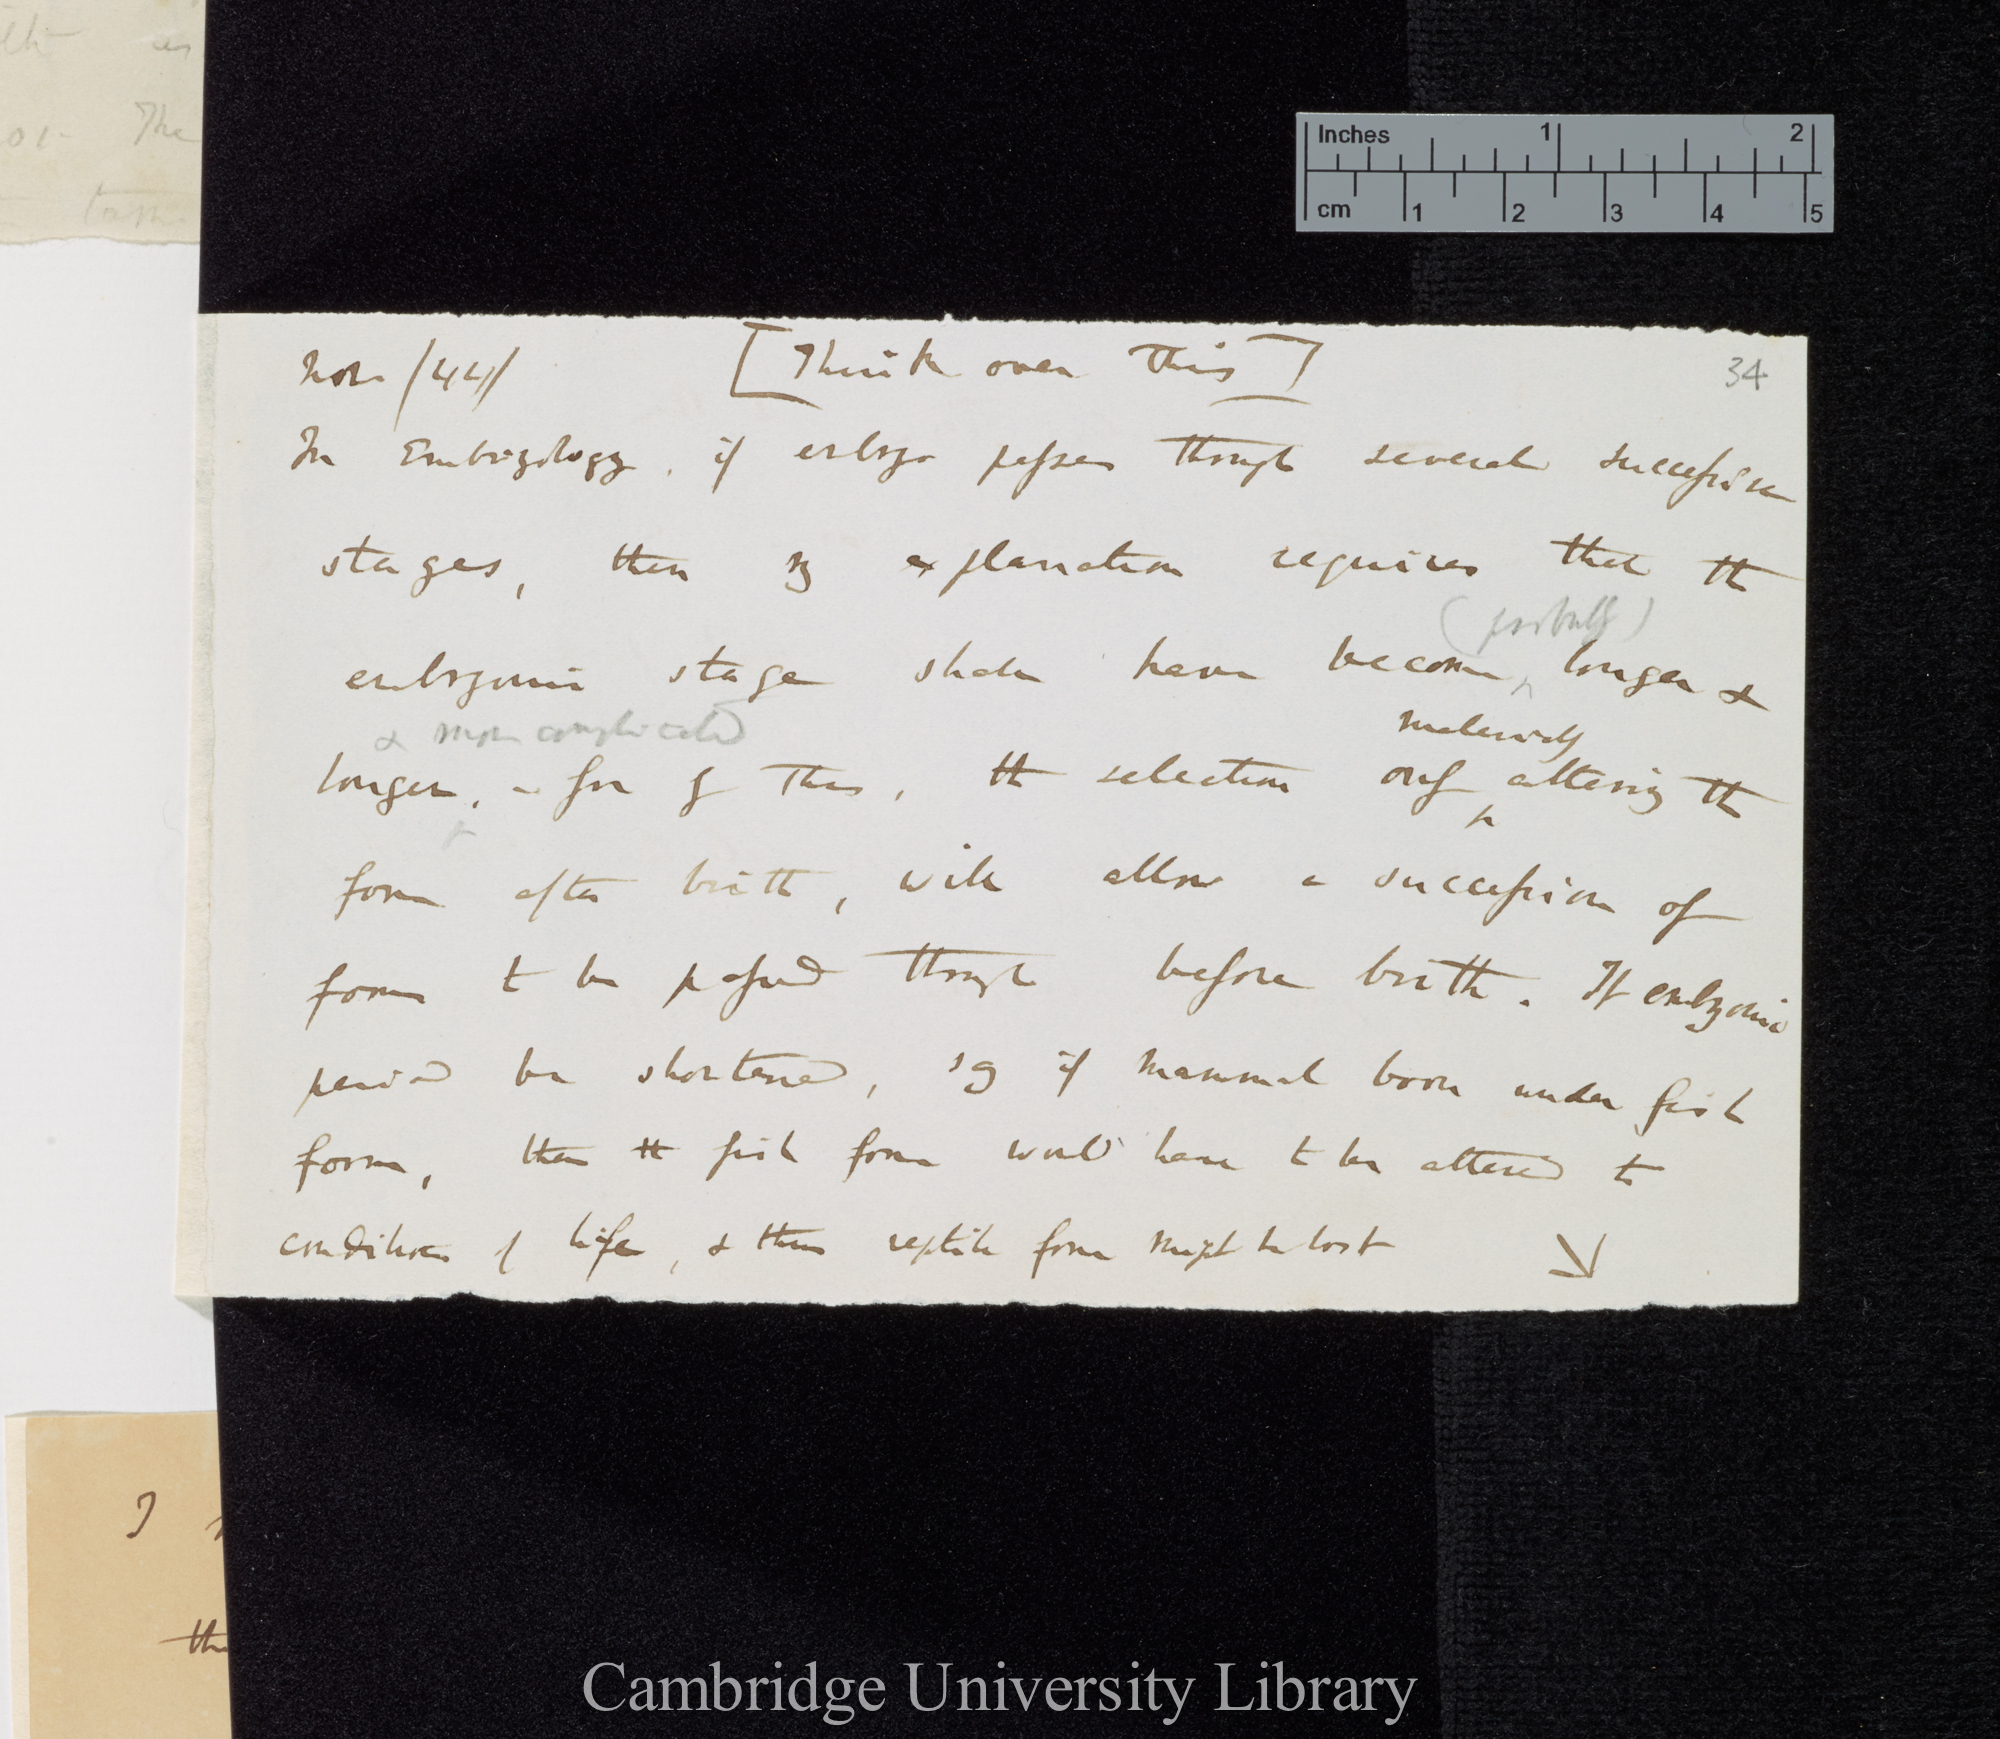 Nov /44/ [Think over this] 34
In Embryology, if embryo passes through several successive
stages, then my explanation requires that the
(probably)
embryonic stage shall have become longer &
& more complicated
materially
longer, – for if thus, the selection only altering the
form after birth, will allow a succession of
forms to be passed through before birth. If embryonic
period be shortened, eg if mammal born under fish
form, then the fish form would have to be altered to
conditions of life, & thus reptile form might be lost
Inches 1 2
cm 1 2 3 4 5
The
I
the
Cambridge University Library